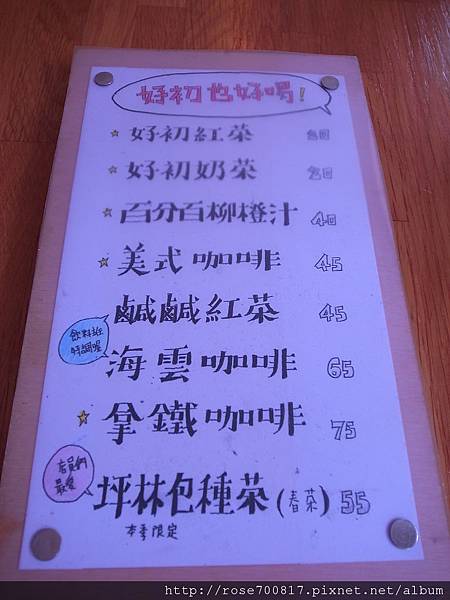 好初也好喝!
好初紅茶 20
好初奶茶 20
百分百柳橙汁 40
美式咖啡 45
鹹鹹紅茶 45
飲料班
特調喔
海雲咖啡 65
拿鐵咖啡 75
店員們
最愛
坪林包種茶(春茶) 55
本季限定
http://rose700817.pixnet.net/album